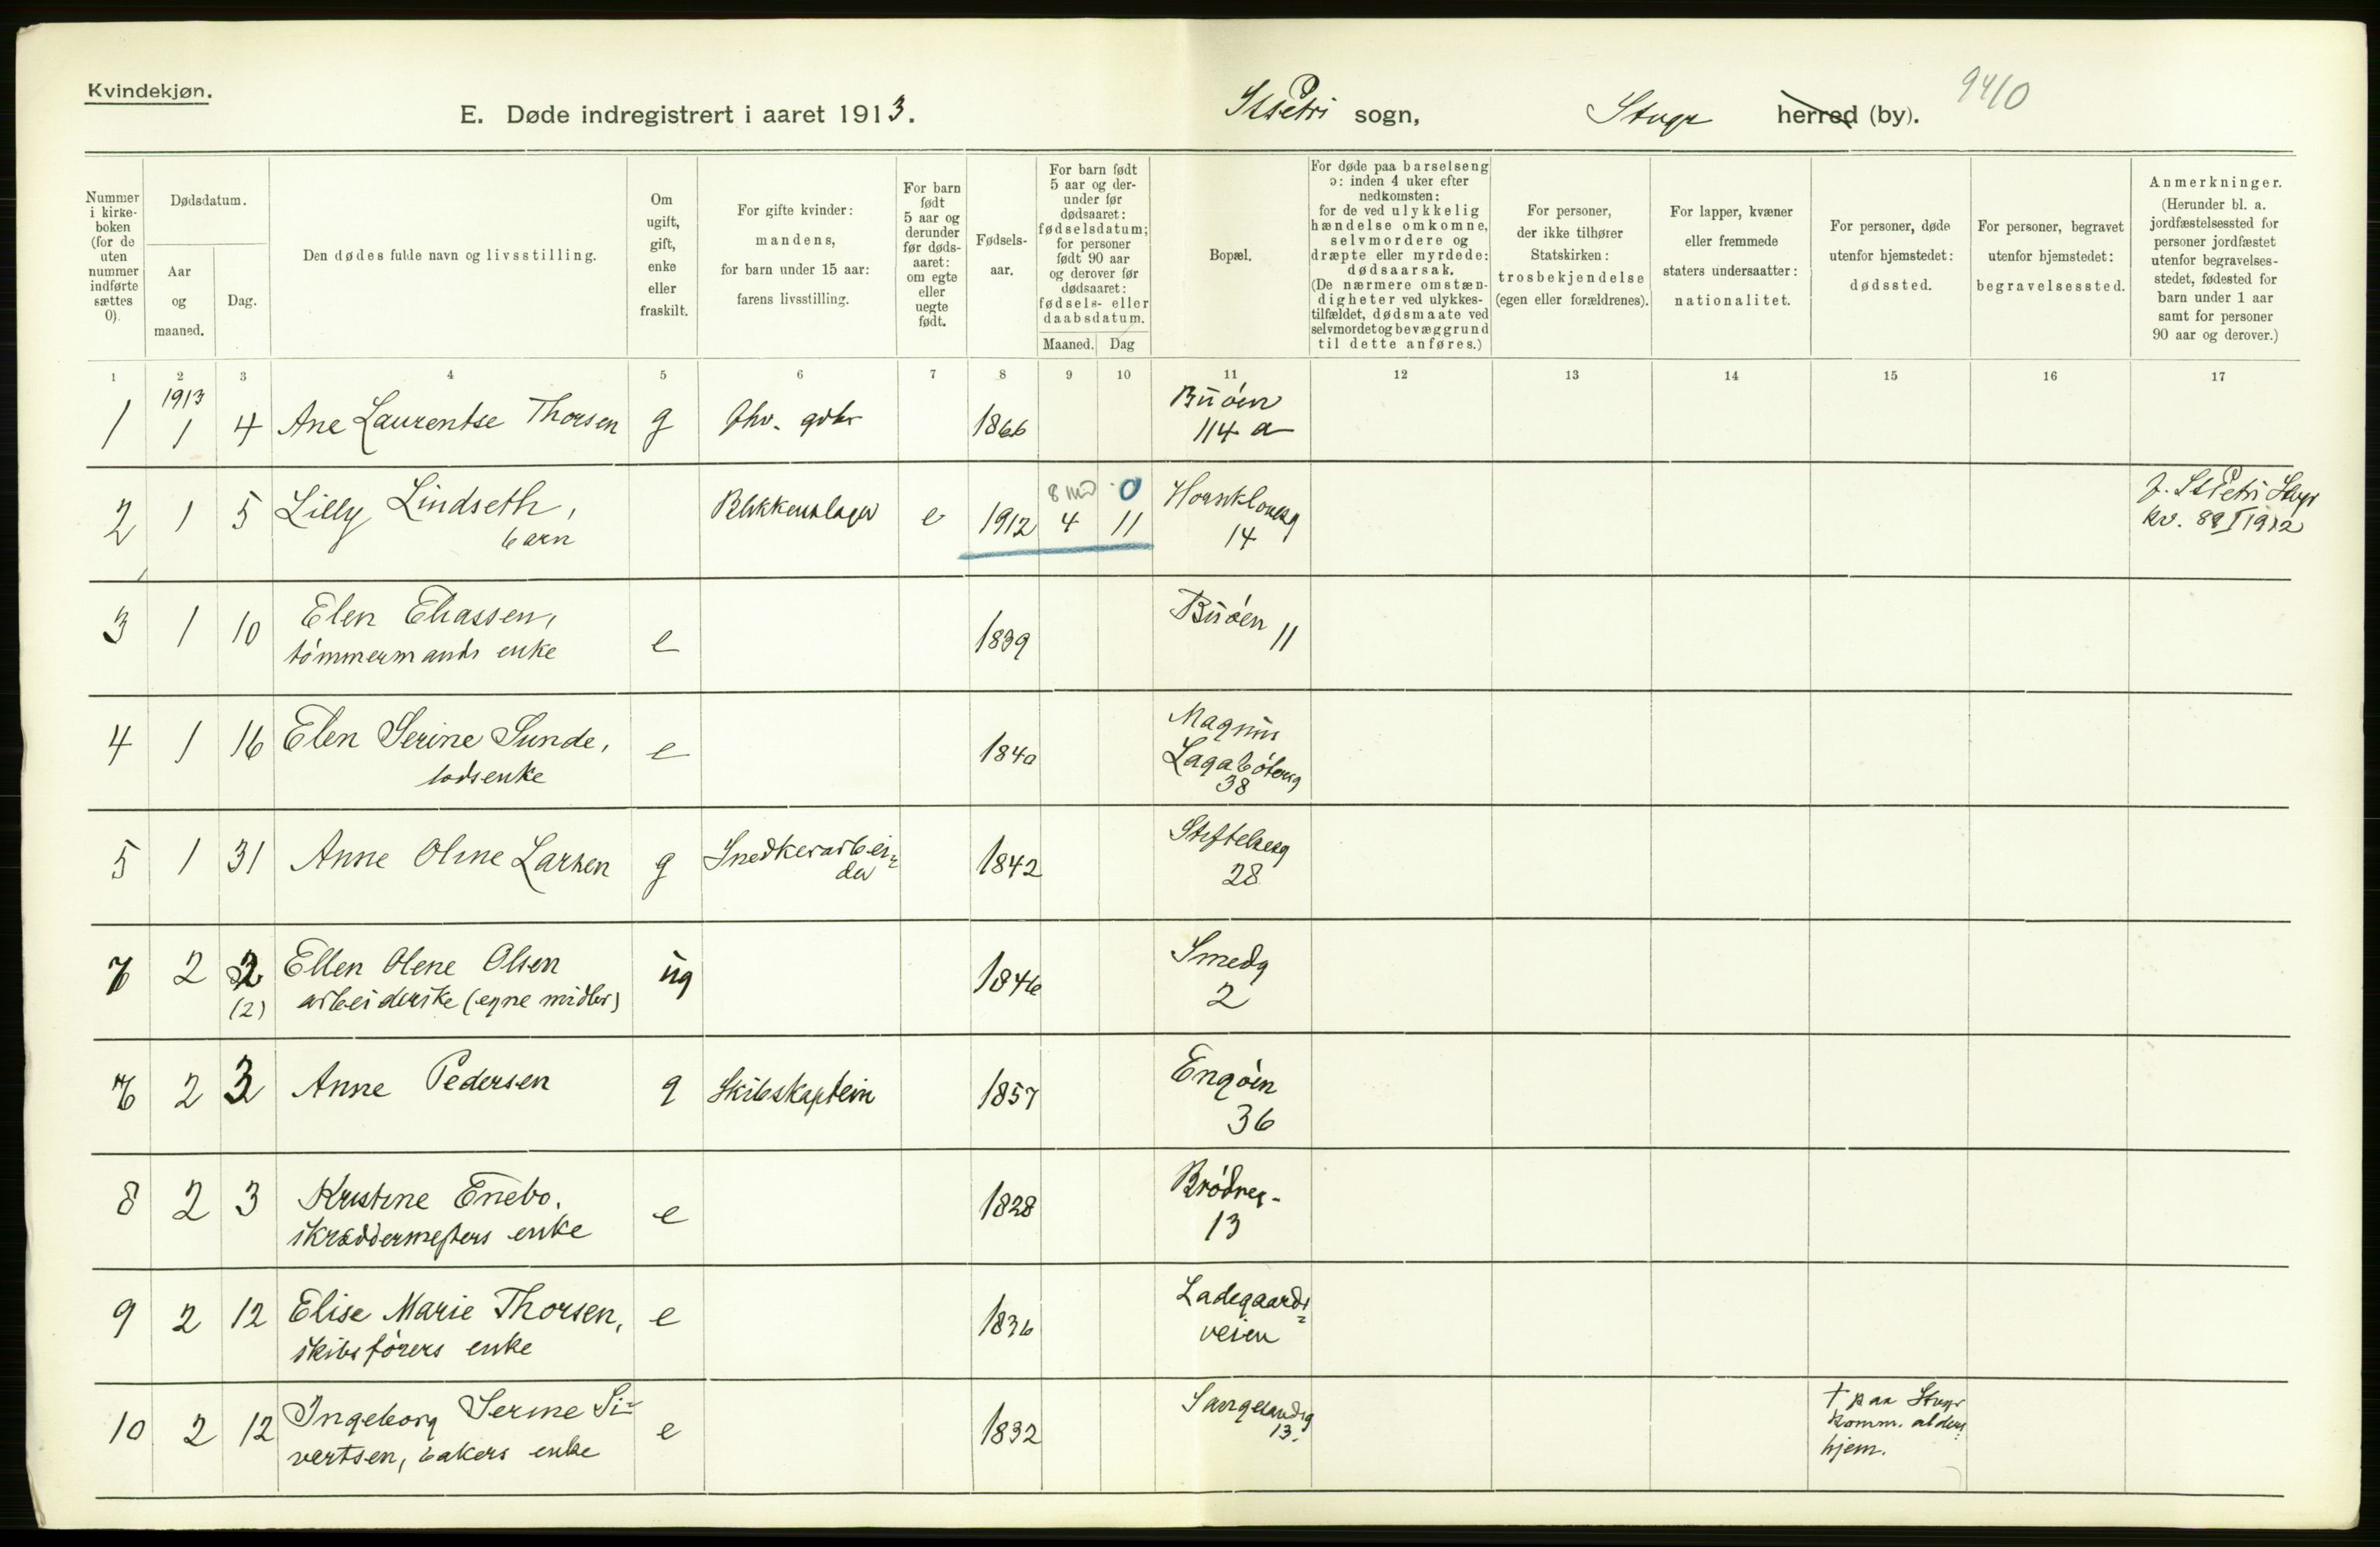 Kvindekjøn.
E. Døde indregistrert i aaret 1913.
St Petri sogn,
Stvgr herred (by).
9410
Nummer
i kirke-
boken
(for de
uten
nummer
indførte
sættes
0).
Dødsdatum.
Aar
og
maaned.
Dag.
Den dødes fulde navn og livsstilling.
Om
ugift,
gift,
enke
eller
fraskilt.
For gifte kvinder:
mandens,
for barn under 15 aar:
farens livsstilling.
For barn
født
5 aar og
derunder
før døds-
aaret:
om egte
eller
uegte
født.
Fødsels-
aar.
For barn født
5 aar og der-
under før
dødsaaret:
fødselsdatum;
for personer
født 90 aar
og derover før
dødsaaret:
fødsels- eller
daabsdatum.
Maaned. Dag
Bopæl.
For døde paa barselseng
ɔ: inden 4 uker efter
nedkomsten:
for de ved ulykkelig
hændelse omkomne,
selvmordere og
dræpte eller myrdede:
dødsaarsak.
(De nærmere omstæn-
digheter ved ulykkes-
tilfældet, dødsmaate ved
selvmordet og bevæggrund
til dette anføres.)
For personer,
der ikke tilhører
Statskirken:
trosbekjendelse
(egen eller forældrenes).
For lapper, kvæner
eller fremmede
staters undersaatter:
nationalitet.
For personer, døde
utenfor hjemstedet:
dødssted.
For personer, begravet
utenfor hjemstedet:
begravelsessted.
Anmerkninger.
(Herunder bl. a.
jordfæstelsessted for
personer jordfæstet
utenfor begravelses-
stedet, fødested for
barn under 1 aar
samt for personer
90 aar og derover.)
1 2 3 4 5 6 7 8 9 10 11 12 13 14 15 16 17
1913
1 1 4 Ane Laurentse Thorsen g 1866 Buøen
114 a
2 1 5 Lilly Lindseth, Blikkenslager e 1912 4 11 Haarkklouesg
barn 14
8 md 0
f. St Petri Stvgr
kv. 88 I 1912
3 1 10 Elen Eliassen, e 1839 Buøen 11
tømmermands enke
4 1 16 Elen Serine Sunde, e 1840 Magnus
lodsenke Lagabøtersg
38
5 1 31 Anne Oline Larsen g Snedkerarbei=
der 1842 Stiftelsesg
28
2 2 Ellen Olene Olsen ug 1846 Smedg
(2) arbeiderske (egne midler) 2
2 3 Anne Pedersen g Skibskaptein 1857 Engøen
36
8 2 3 Kristine Enebo, e 1828 Brødreg-
skræddermesters enke 13
9 2 12 Elise Marie Thorsen, e 1836 Ladegaards=
skibsførers enke veien
10 2 12 Ingeborg Serine Si= e 1832 Sangesandsg
vertsen, bakers enke 13.
† paa Stvgr
komm. alders=
hjem.